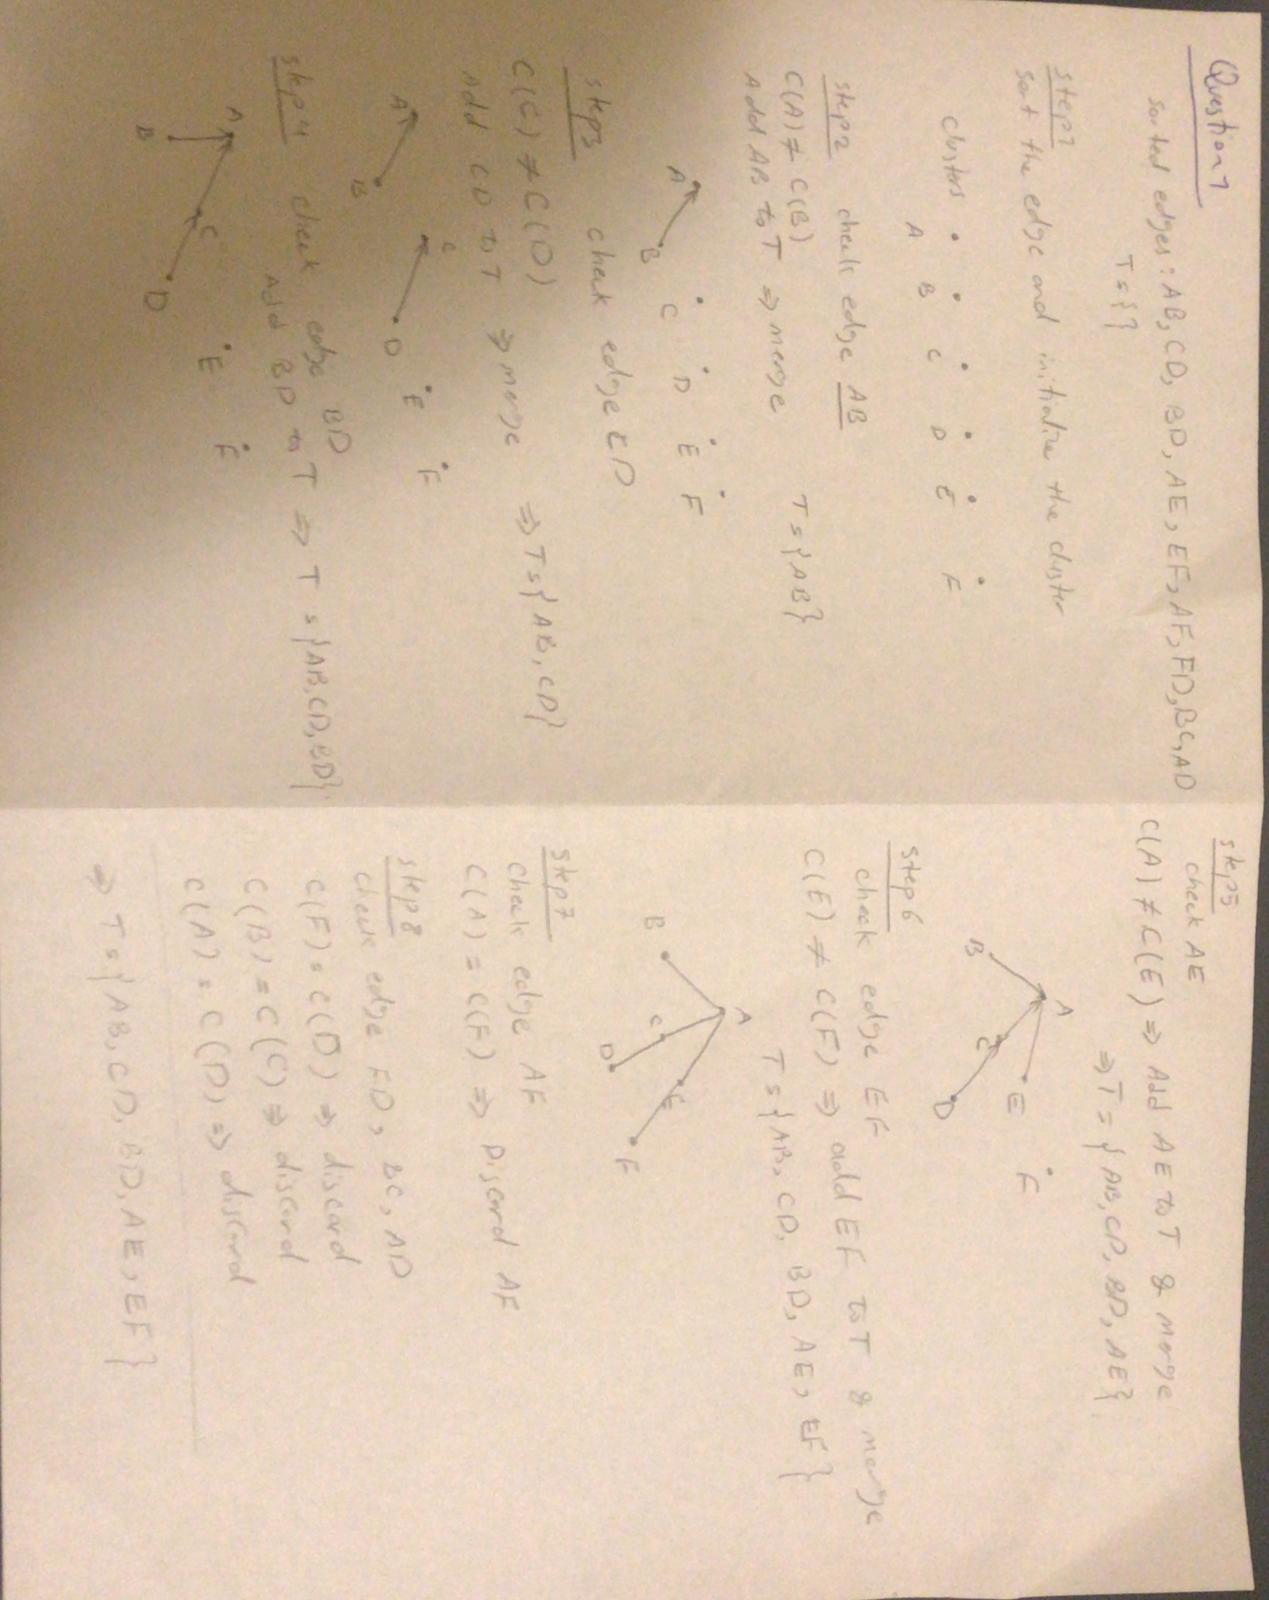 Question 1
sorted edges: AB, CD, BD, AE, EF, AF, FD, BC, AD
T = { }
step 1
sort the edge and initialize the cluster
clusters
A B C D E F
step 2 check edge AB
C(A) ≠ C(B)
Add AB to T ⇒ merge T = {AB}
A B C D E F
step 3 check edge CD
C(C) ≠ C(D)
Add CD to T ⇒ merge ⇒ T = {AB, CD}
A B C D E F
step 4 check edge BD
Add BD to T ⇒ T = {AB, CD, BD}
A B C D E F
step 5
check AE
C(A) ≠ C(E) ⇒ Add AE to T & merge
⇒ T = {AB, CD, BD, AE}
A B C D E F
step 6
check edge EF
C(E) ≠ C(F) ⇒ add EF to T & merge
T = {AB, CD, BD, AE, EF}
A B C D E F
step 7
check edge AF
C(A) = C(F) ⇒ Discard AF
step 8
check edge FD, BC, AD
C(F) = C(D) ⇒ discard
C(B) = C(C) ⇒ discard
C(A) = C(D) ⇒ discard
⇒ T = {AB, CD, BD, AE, EF}